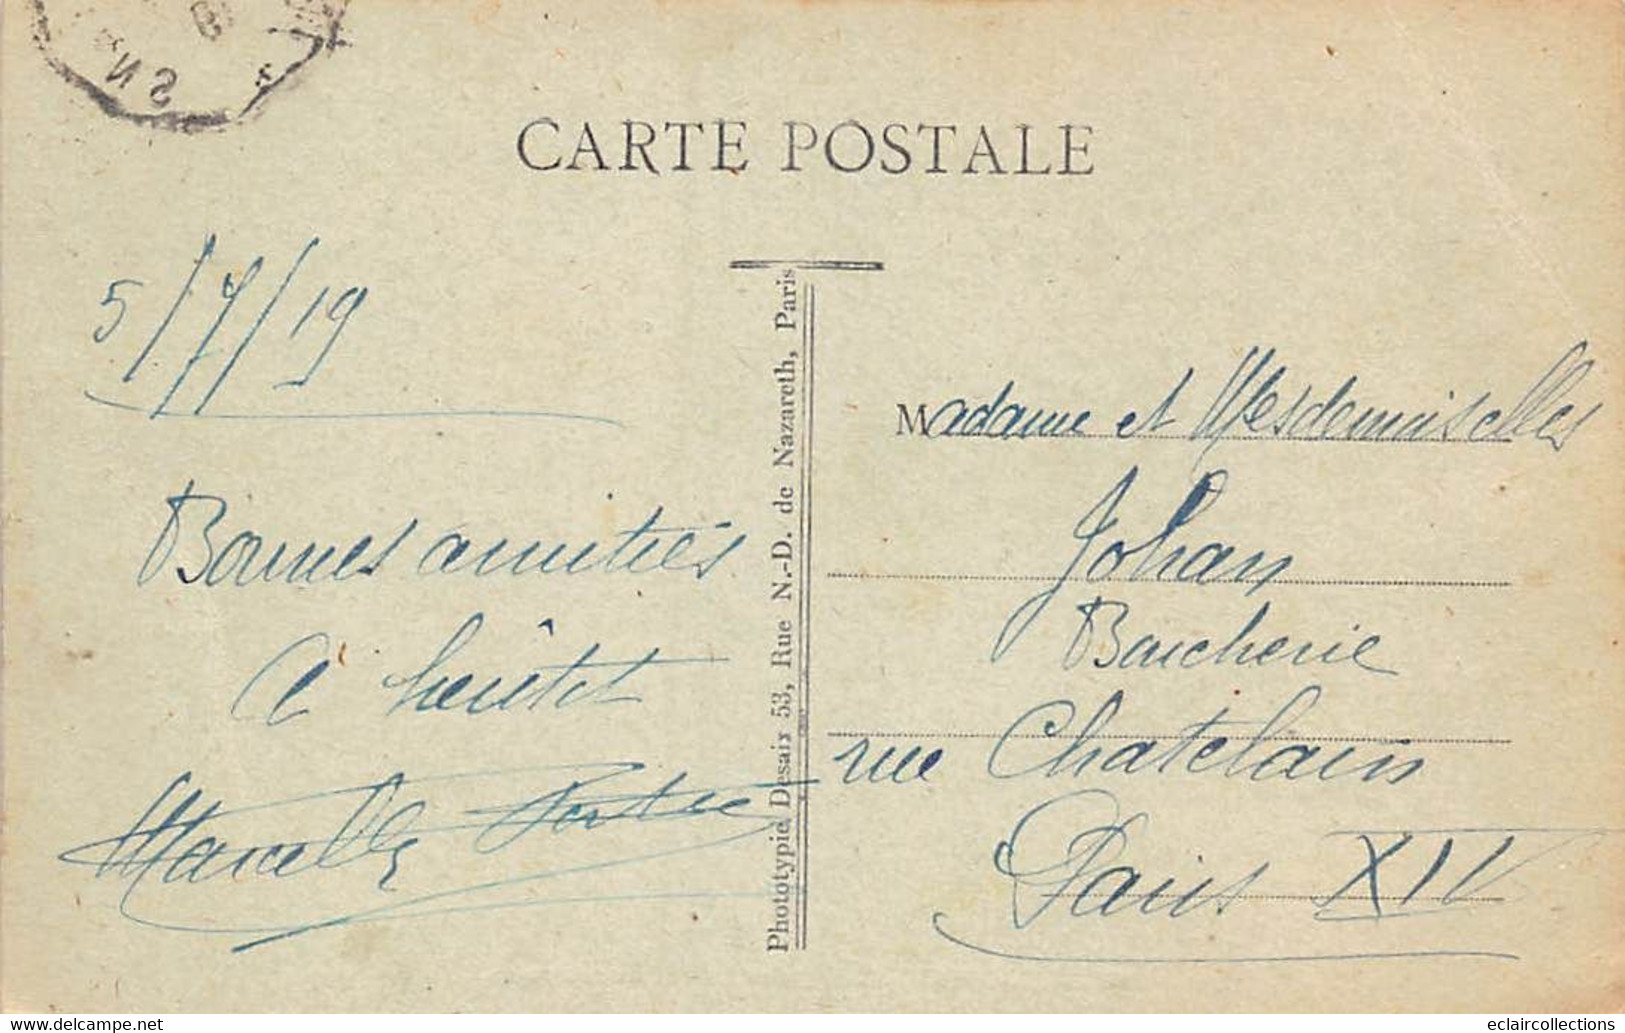 CARTE POSTALE
5/7/19
Bonnes amitiés
A bientôt
Marcelle
Phototypie Desaix 53, Rue N.-D. de Nazareth, Paris
Madame et Mesdemoiselles
Johan
Boucherie
rue Chatelain
Paris XIV
www.delcampe.net
eclaircollections